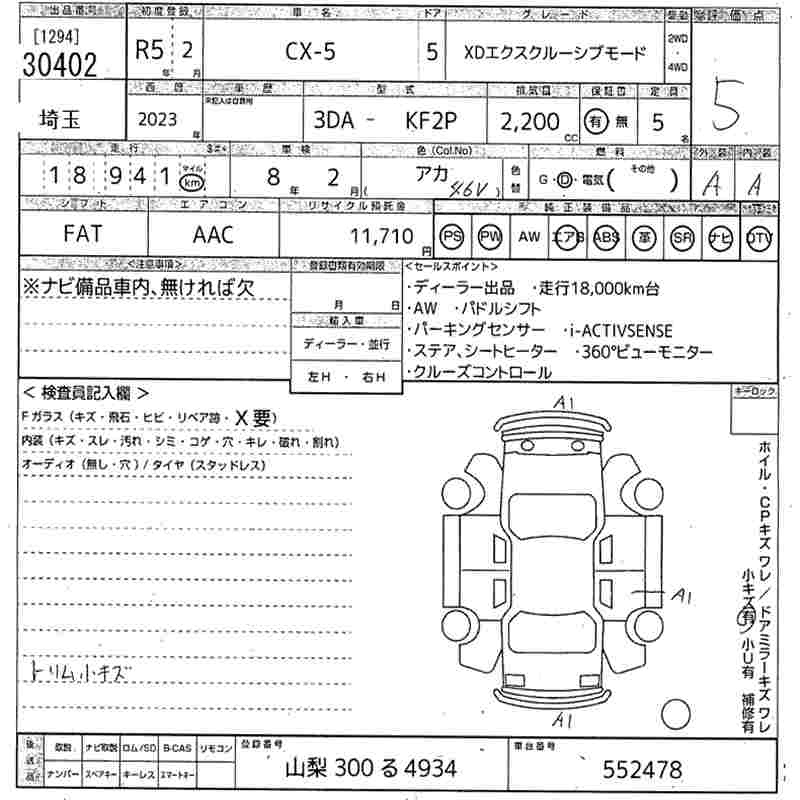 出品番号 初度登録 車名 ドア グレード 駆動 評価点
[1294]
30402
R5 2
年 月
CX-5
5
XDエクスクルーシブモード
2WD
・
4WD
5
西暦 車歴 型式 排気量 保証書 定員
※記入は自家用
埼玉
2023 年
3DA - KF2P
2,200 CC
有 無
5 名
走行 車検 色 (Col.No) 燃料 外装 内装
18941
マイル
km
8 年 2 月
アカ
(46V)
色替
G・D・電気( その他 )
A
A
シフト エアコン リサイクル預託金 純正装備品
FAT
AAC
11,710 円
PS PW AW エアB ABS 革 SR ナビ DTV
<注意事項>
※ナビ備品車内、無ければ欠
登録書類有効期限
月 日
輸入車
ディーラー・並行
左H ・ 右H
<セールスポイント>
・ディーラー出品 ・走行18,000km台
・AW ・パドルシフト
・パーキングセンサー ・i-ACTIVSENSE
・ステア、シートヒーター ・360°ビューモニター
・クルーズコントロール
< 検査員記入欄 >
Fガラス(キズ・飛石・ヒビ・リペア跡・X要)
内装(キズ・スレ・汚れ・シミ・コゲ・穴・キレ・破れ・割れ)
オーディオ(無し・穴)/タイヤ(スタッドレス)
トリム小キズ
A1
A1
A1
キーロック
ホイル・CPキズ ワレ/ドアミラーキズ ワレ
小キズ有 小U有 補修有
後送品
取説 ナビ取説 ロム/SD B-CAS リモコン
ナンバー スペアキー キーレス スマートキー
登録番号
山梨 300 る 4934
車台番号
552478